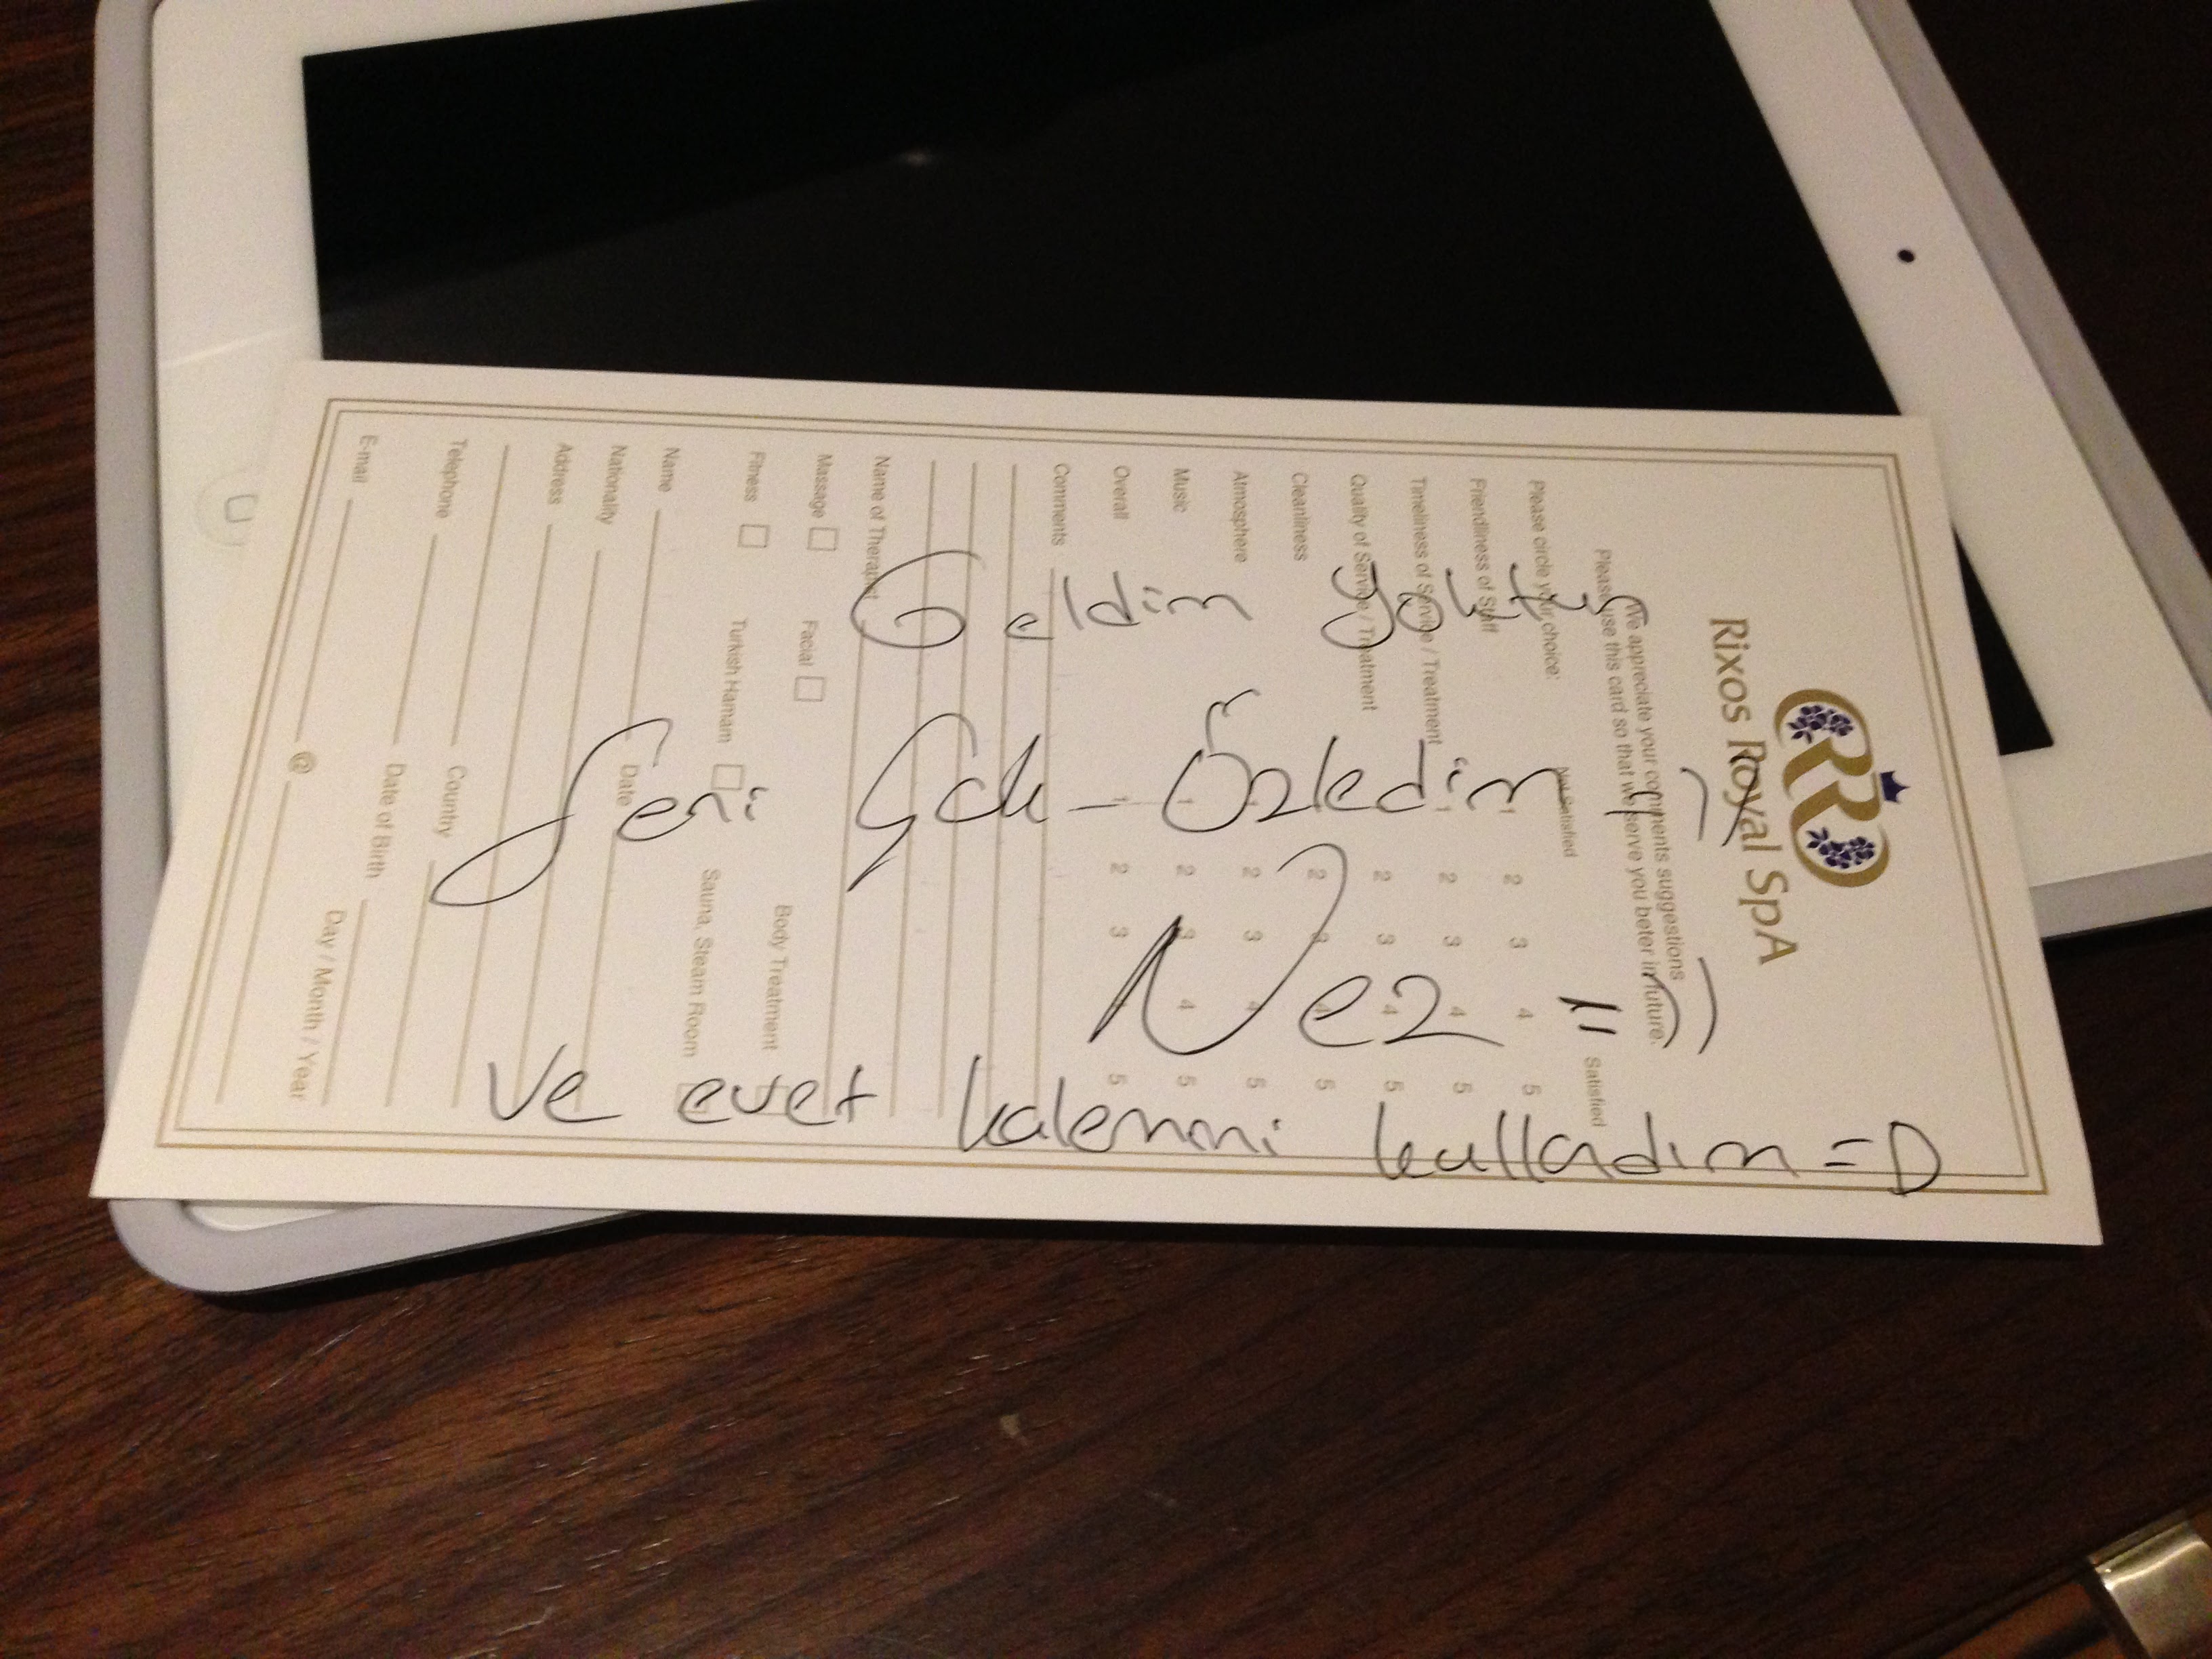 Rixos Royal SpA
We appreciate your comments suggestions
Please use this card so that we serve you beter in future.
Please circle your choice: Not Satisfied Satisfied
Friendliness of Staff 1 2 3 4 5
Timeliness of Service / Treatment 1 2 3 4 5
Quality of Service / Treatment 1 2 3 4 5
Cleanliness 1 2 3 4 5
Atmosphere 1 2 3 4 5
Music 1 2 3 4 5
Overall 1 2 3 4 5
Comments
Name of Therapist
Massage Facial Body Treatment
Fitness Turkish Hamam Sauna, Steam Room
Name Date
Nationality
Address
Telephone Country
Date of Birth Day / Month / Year
E-mail @
Geldim yoktun
Seni Çok Özledim =))
Nez =))
ve evet kalemini kulladım =D